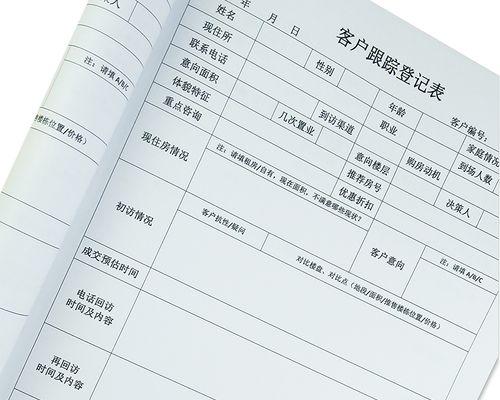 客户跟踪登记表
年 月 日
客户编号:
姓名
性别
年龄
家庭情况
现住所
职业
到场人数
联系电话
到访渠道
购房动机
决策人
意向面积
几次置业
意向楼层
体貌特征
推荐房号
重点咨询
优惠折扣
现住房情况
注: 请填租房/自有, 现在面积, 不满意哪些现状?
初访情况
客户抗性/疑问
客户意向
注: 请填 A/B/C
对比楼盘、对比点 (地段/面积/推售楼栋位置/价格)
成交预估时间
电话回访
时间及内容
再回访
时间及内容
人
注: 请填 A/B/C
楼栋位置/价格)